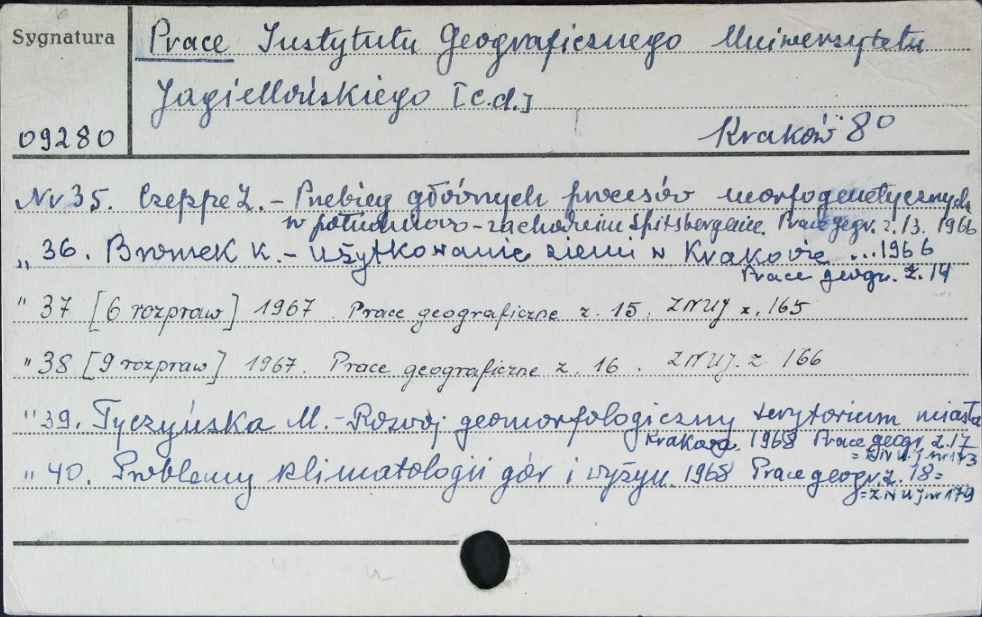 Sygnatura
Prace Instytutu Geograficznego Uniwersytetu
Jagiellońskiego [c.d.]
09280
Kraków 8°
Nr 35. Czeppe Z. - Przebieg głównych procesów morfogenetycznych
w południowo-zachodnim Spitsbergenie. Prace geogr. z. 13. 1966
„ 36. Bromek K. - Użytkowanie ziemi w Krakowie ... 1966
Prace geogr. z. 14
" 37 [6 rozpraw] 1967. Prace geograficzne z. 15. ZNUJ z. 165
" 38 [9 rozpraw] 1967. Prace geograficzne z. 16. ZNUJ. z 166
" 39. Tyczyńska M. - Rozwój geomorfologiczny terytorium miasta
Krakowa. 1968 Prace geogr. z. 17
= ZNUJ nr 173
" 40. Problemy klimatologii gór i wyżyn. 1968 Prace geogr. z. 18 =
= ZNUJ nr 179